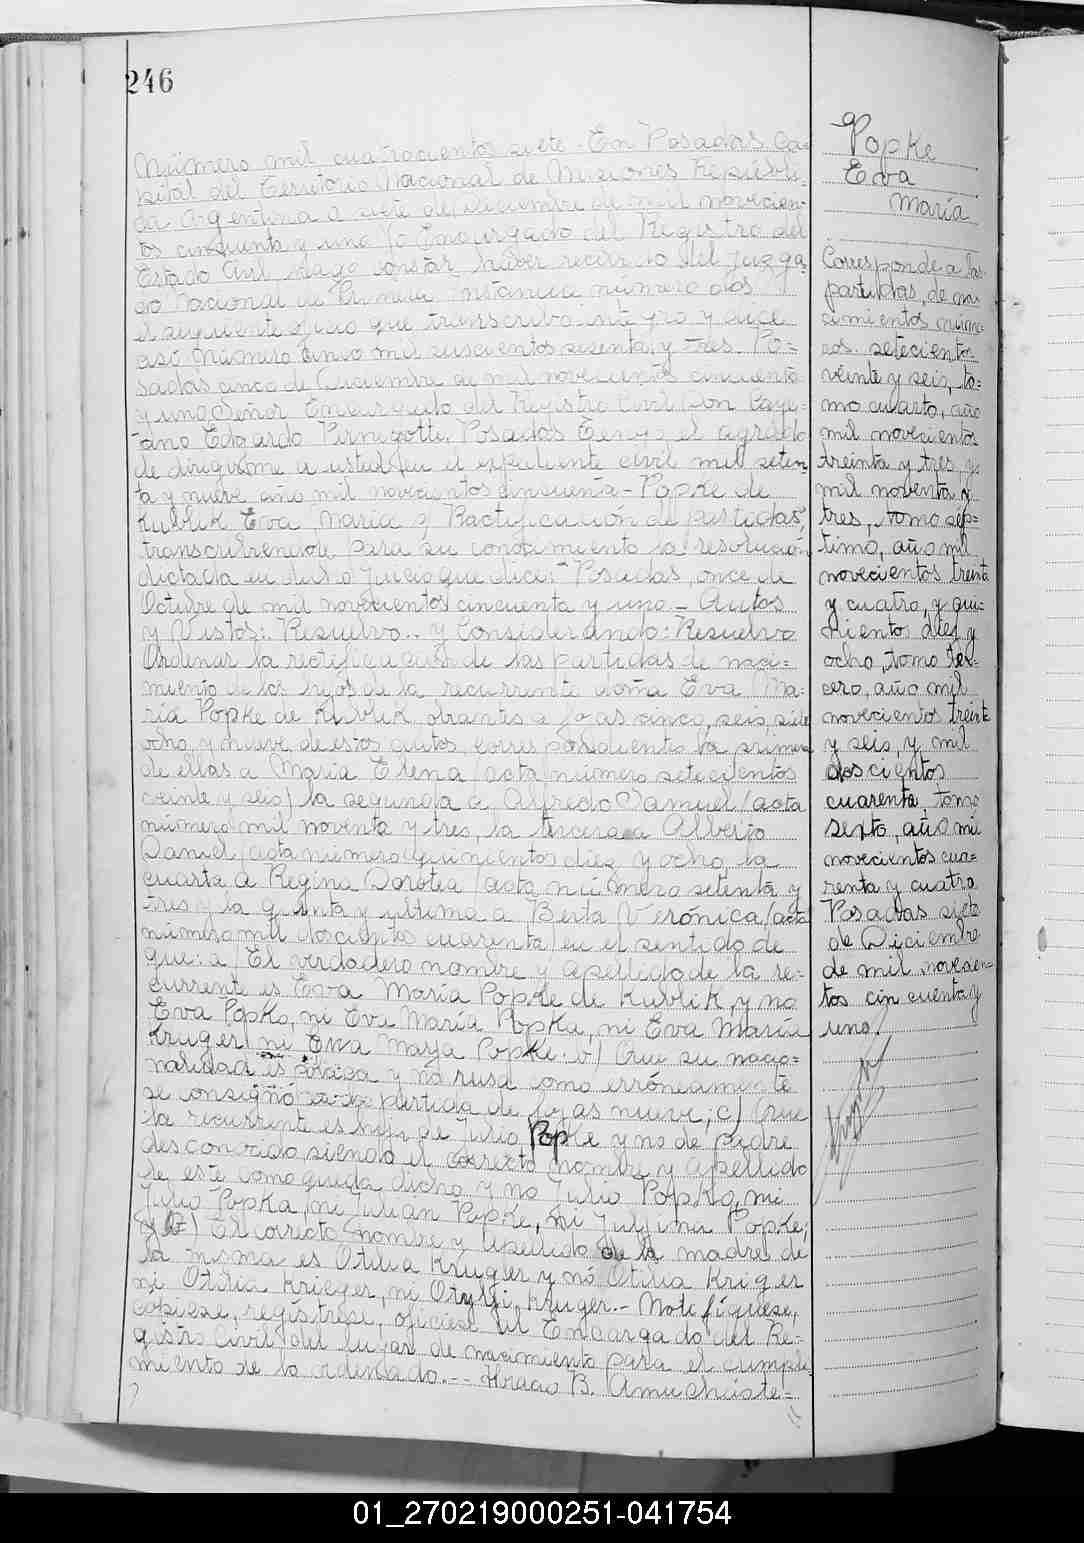 246
Número mil cuatrocientos siete - En Posadas Ca-
pital del Territorio Nacional de Misiones Repúbli-
ca Argentina a siete de Diciembre de mil novecien-
tos cincuenta y uno Yo Encargado del Registro del
Estado Civil hago constar haber recibido del Juzga-
do Nacional de Primera Instancia número dos
el siguiente oficio que transcribo íntegro y dice
así Número Cinco mil seiscientos sesenta y tres. Po=
sadas cinco de Diciembre de mil novecientos cincuenta
y uno Señor Encargado del Registro Civil Don Caye-
tano Edgardo Pirnegotti. Posadas Tengo el agrado
de dirigirme a usted en el expediente civil mil seten-
ta y nueve año mil novecientos cincuenta - Popke de
Kublik Eva María y Ractificación de partidas,
transcribiéndole para su conocimiento la resolución
dictada en dicho juicio que dice: "Posadas, once de
Octubre de mil novecientos cincuenta y uno - Autos
y Vistos: Resuelvo.. y Considerando: Resuelvo
Ordenar la rectificación de las partidas de naci=
miento de los hijos de la recurrente doña Eva Ma=
ría Popke de Kublik obrantes a fojas cinco, seis, siete
ocho, y nueve de estos autos, correspondiente la primera
de ellas a María Elena (acta número setecientos
veinte y seis) la segunda a Alfredo Samuel (acta
número mil noventa y tres, la tercera a Alberto
Daniel (acta número quinientos diez y ocho, la
cuarta a Regina Dorotea (acta número setenta y
tres y la quinta y última a Berta Verónica (acta
número mil doscientos cuarenta) en el sentido de
que: a) El verdadero nombre y apellido de la re=
currente es Eva María Popke de Kublik, y no
Eva Popko, ni Eva María Popka, ni Eva María
Kruger ni Ewa Marja Popke. b) Que su nacio=
nalidad es polaca y no rusa como erróneamente
se consignó en la partida de fojas nueve; c) Que
la recurrente es hija de Julio Popke y no de padre
desconocido, siendo el correcto nombre y apellido
de este como queda dicho y no Julio Popko, ni
Julio Popka, ni Julian Popke, ni Juljima Popke;
y d) El correcto nombre y apellido de la madre de
la misma es Otilia Kruger y no Otilia Kriger
ni Otilia Krieger, ni Otylji Kruger.- Notifíquese,
cópiese, regístrese, ofíciese al Encargado del Re=
gistro Civil del lugar de nacimiento para el cumpli-
miento de lo ordenado.-- Horacio B. Amuchaste=
Popke
Eva
María
Corresponde a las
partidas, de na-
cimientos núme-
ros. setecientos
veinte y seis, to=
mo cuarto, año
mil novecientos
treinta y tres, y
mil noventa y
tres, tomo sép=
timo, año mil
novecientos treinta
y cuatro, y qui=
nientos diez y
ocho, tomo ter=
cero, año mil
novecientos treinta
y seis, y mil
doscientos
cuarenta, tomo
sexto, año mil
novecientos cua=
renta y cuatro
Posadas siete
de Diciembre
de mil novecien=
tos cincuenta y
uno.
01_270219000251-041754